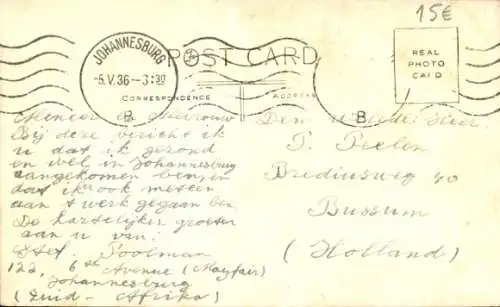 15€
JOHANNESBURG
5.V.36-3:30
B.
B
POST CARD
CORRESPONDENCE
ADDRESS
REAL
PHOTO
CARD
Meneer & Mevrouw
Bij deze bericht ik
u dat ik gezond
en wel in Johannesburg
aangekomen ben, en
dat ik ook meteen
aan 't werk gegaan ben
De hartelijken groeten
aan u van:
Poolman
122, 6th Avenue (Mayfair)
Johannesburg
(Zuid-Afrika)
Den Heer
P. Peelen
Brediusweg 40
Bussum
(Holland)